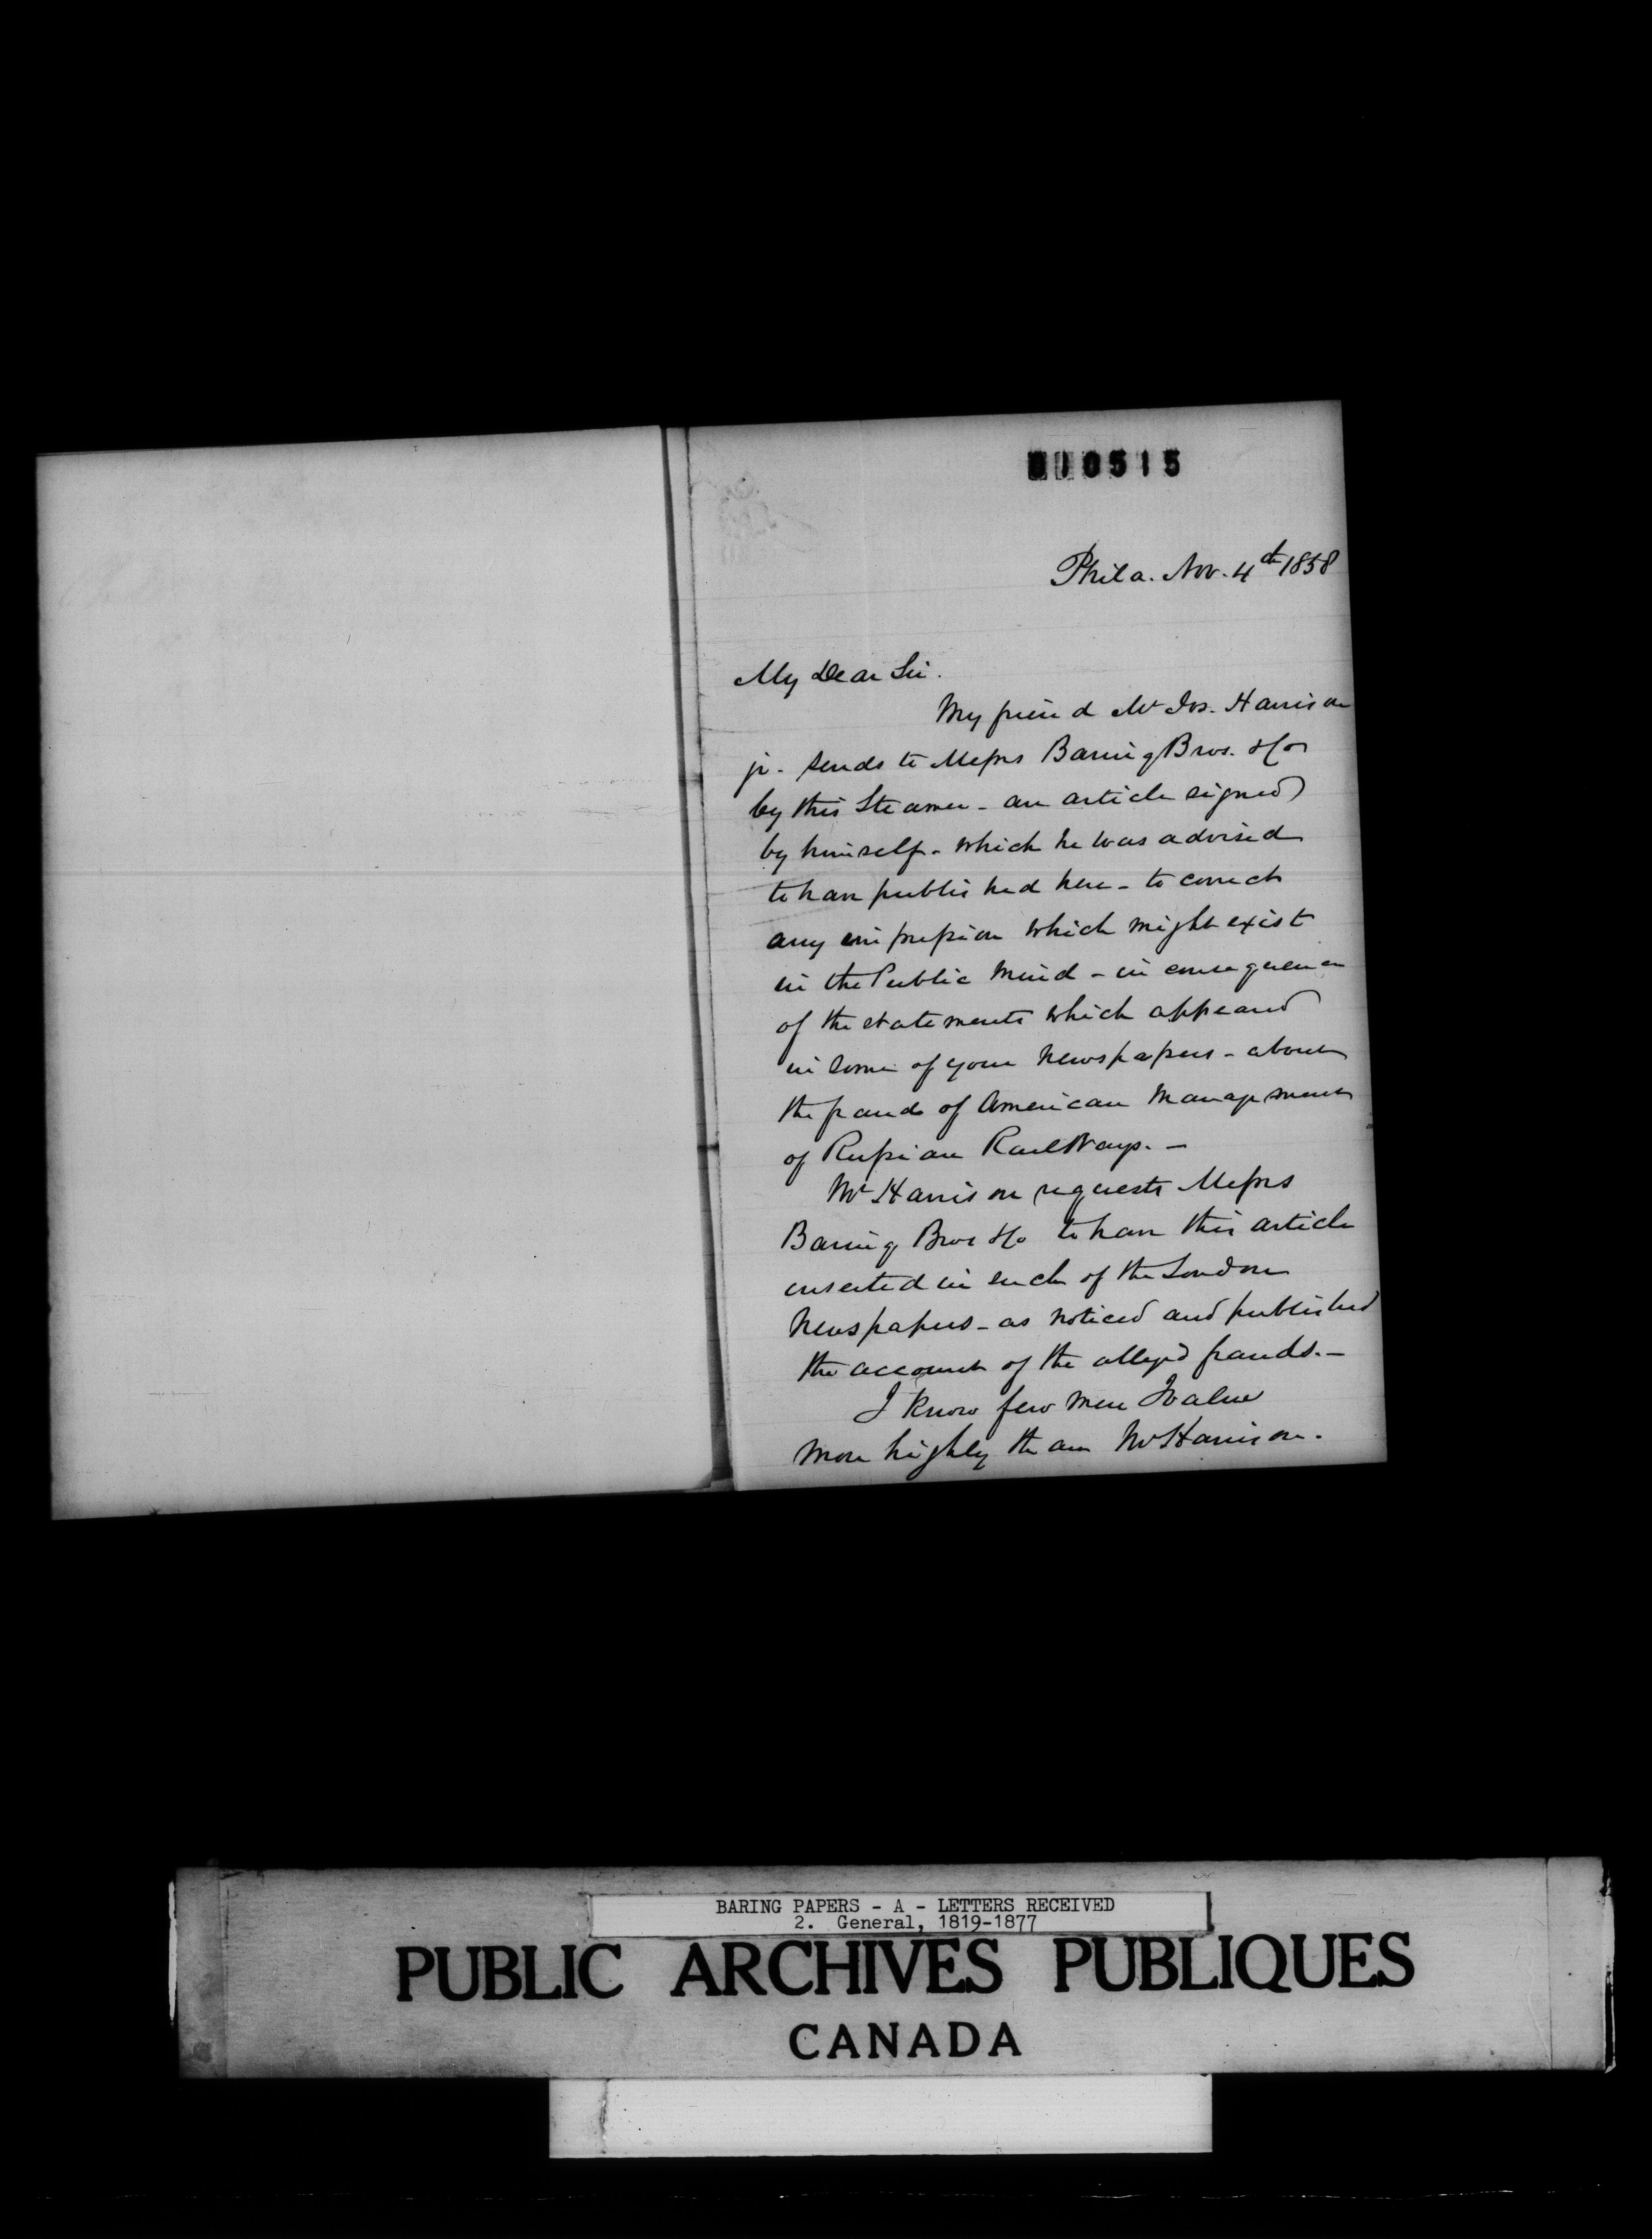 010515
Phila. Nov. 4th 1858
My Dear Sir.
My friend Mr Jos. Harrison
jr. sends to Messrs Baring Bros. & Co
by this Steamer - an article signed
by himself - which he was advised
to have published here - to correct
any impression which might exist
in the Public Mind - in consequence
of the statements which appeared
in some of your Newspapers - about
the frauds of American Management
of Russian RailWays. -
Mr Harrison requests Messrs
Baring Bros & Co to have this article
inserted in such of the London
Newspapers - as noticed and published
the account of the alleged frauds. -
I know few men I value
more highly than Mr Harrison.
BARING PAPERS - A - LETTERS RECEIVED
2. General, 1819-1877
PUBLIC ARCHIVES PUBLIQUES
CANADA